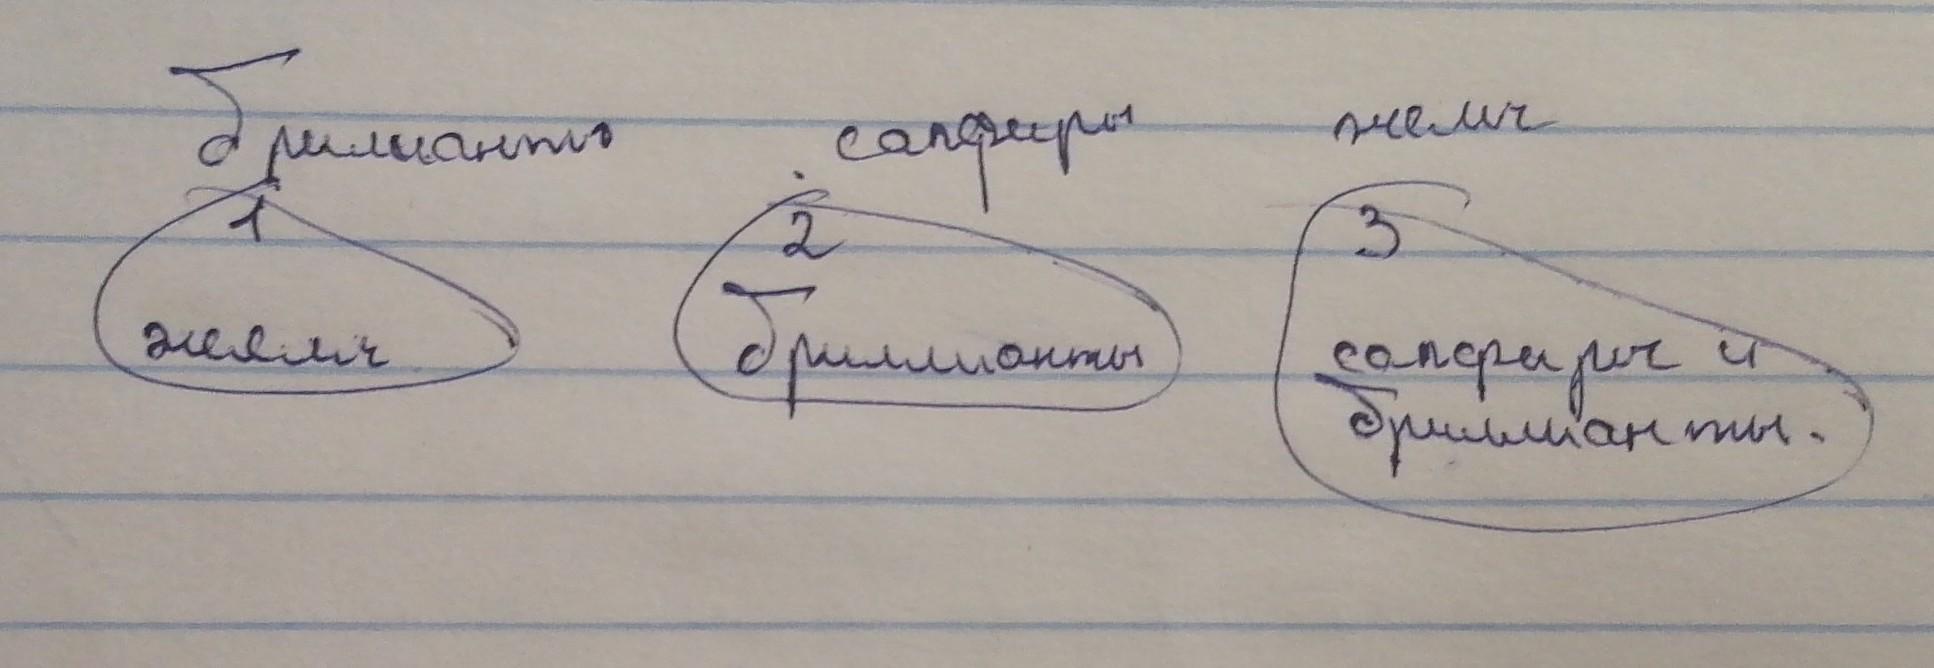 брилианты сапфиры жемч
1 2 3
жемч бриллианты сапфиры и
бриллианты.